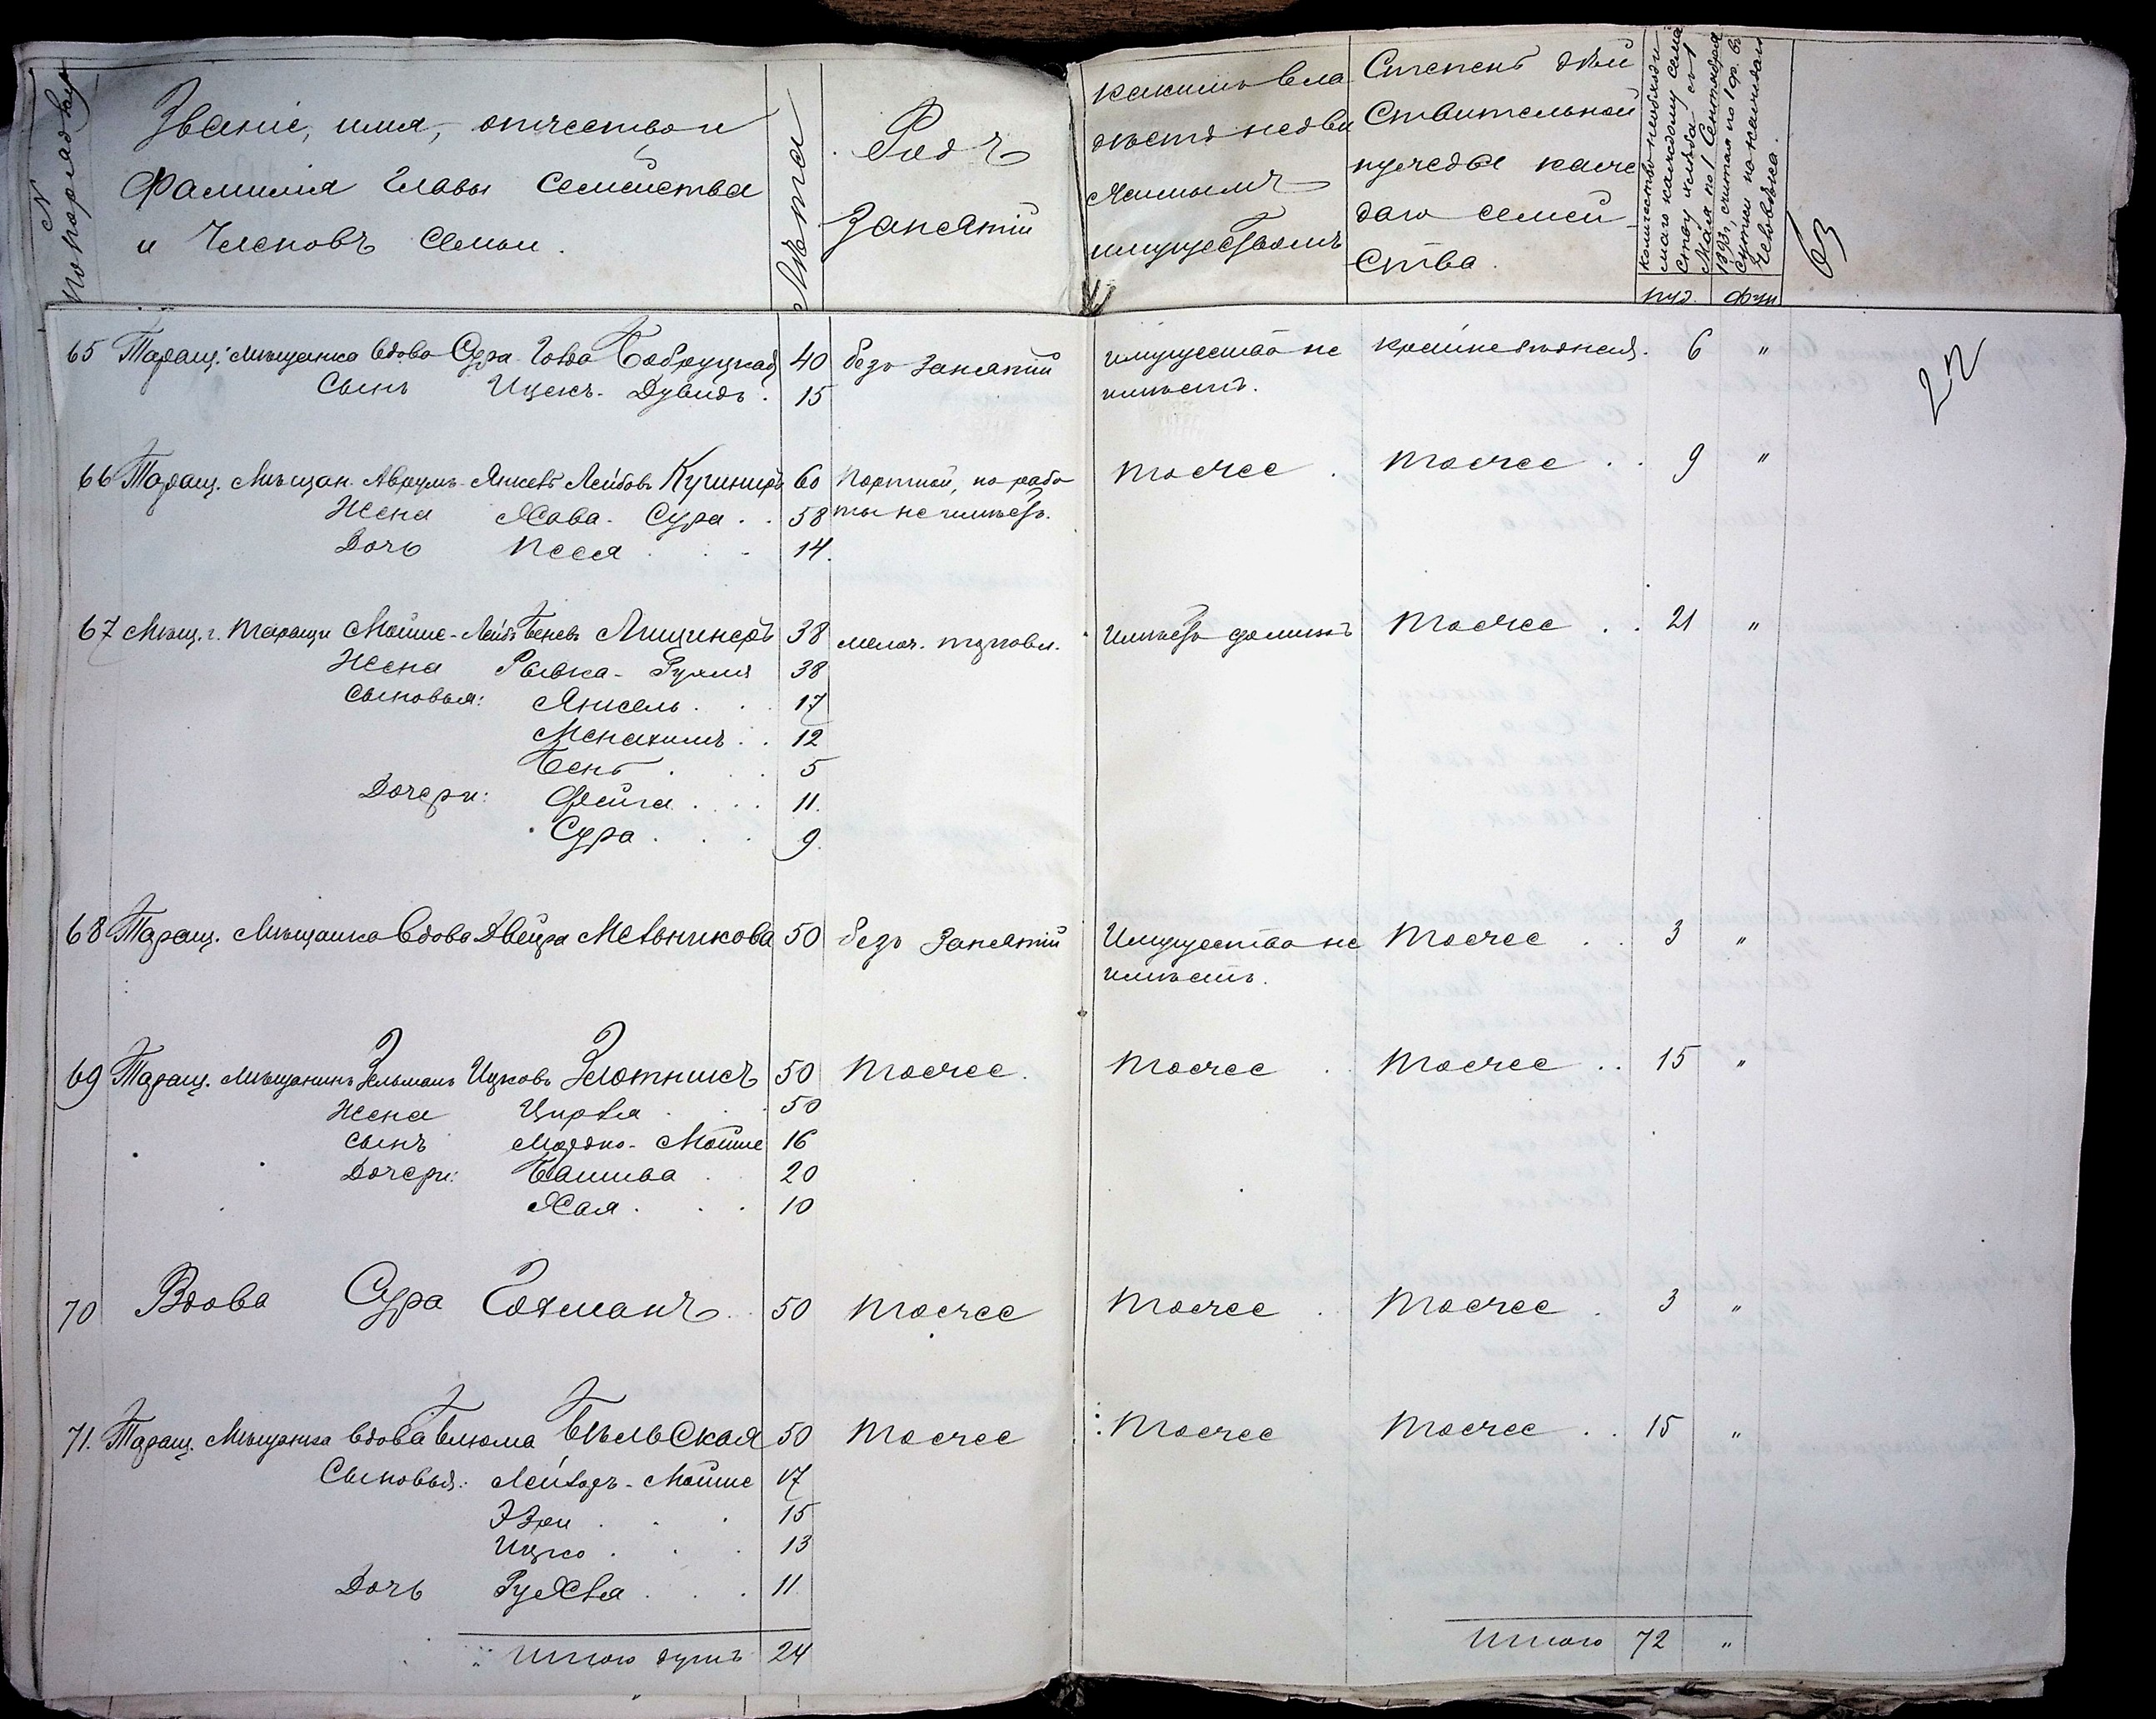 N
по порядку
Званіе, имя, отчество и
Фамилія Главы Семейства
и Членовъ Семьи.
Лѣта
Родъ
Занятій
какимъ вла
дѣетъ недви
жимымъ
имуществомъ
Степень дѣй
ствительной
нужды каж
даго семей
ства.
Количество необходи
маго каждому семей
ству хлѣба съ 1
Мая по 1 Сентября
1893 г, считая по 1 ф. въ
сутки на каждаго
человѣка.
пуд. фун
63
65 Таращ. мѣщанка вдова Сура Бобруцкая 40 безъ занятій имущества не крайне бѣдная. 6 "
Сынъ Ицекъ-Дувидъ. 15 имѣетъ.
66 Таращ. Мѣщан. Аврумъ-Янкель Лейбовъ Кушниръ 60 Портной, но рабо тоже. тоже. 9 "
Жена Хава-Сура. 58 ты не имѣетъ.
Дочь Песя 14.
67 Мѣщ. г. Таращи Мойше-Лейбъ Беневъ 38 мелоч. торговл. Имѣетъ домикъ тоже 21 "
Жена Рывка-Рухля 38
Сыновья: Янкель 17
Менахимъ 12
Бень 5
Дочери: Фейга 11.
Сура 9.
68 Таращ. Мѣщанка вдова Двейра Мельникова 50 безъ занятій Имущества не тоже 3 "
имѣетъ.
69 Таращ. мѣщанинъ Зельманъ Ицковъ Злотникъ 50 тоже. тоже тоже 15 "
Жена Цирля 50
Сынъ Мордко-Мойше 16
Дочери: Башива 20
Хая 10
70 Вдова Сура Гохманъ 50 тоже тоже тоже 3 "
71. Таращ. Мѣщанка вдова Блюма Бѣльская 50 тоже тоже тоже 15 "
Сыновья: Лейзеръ-Мойше 17
Эзри 15
Ицко 13
Дочь Рухля 11.
Итого душъ 24 Итого 72 "